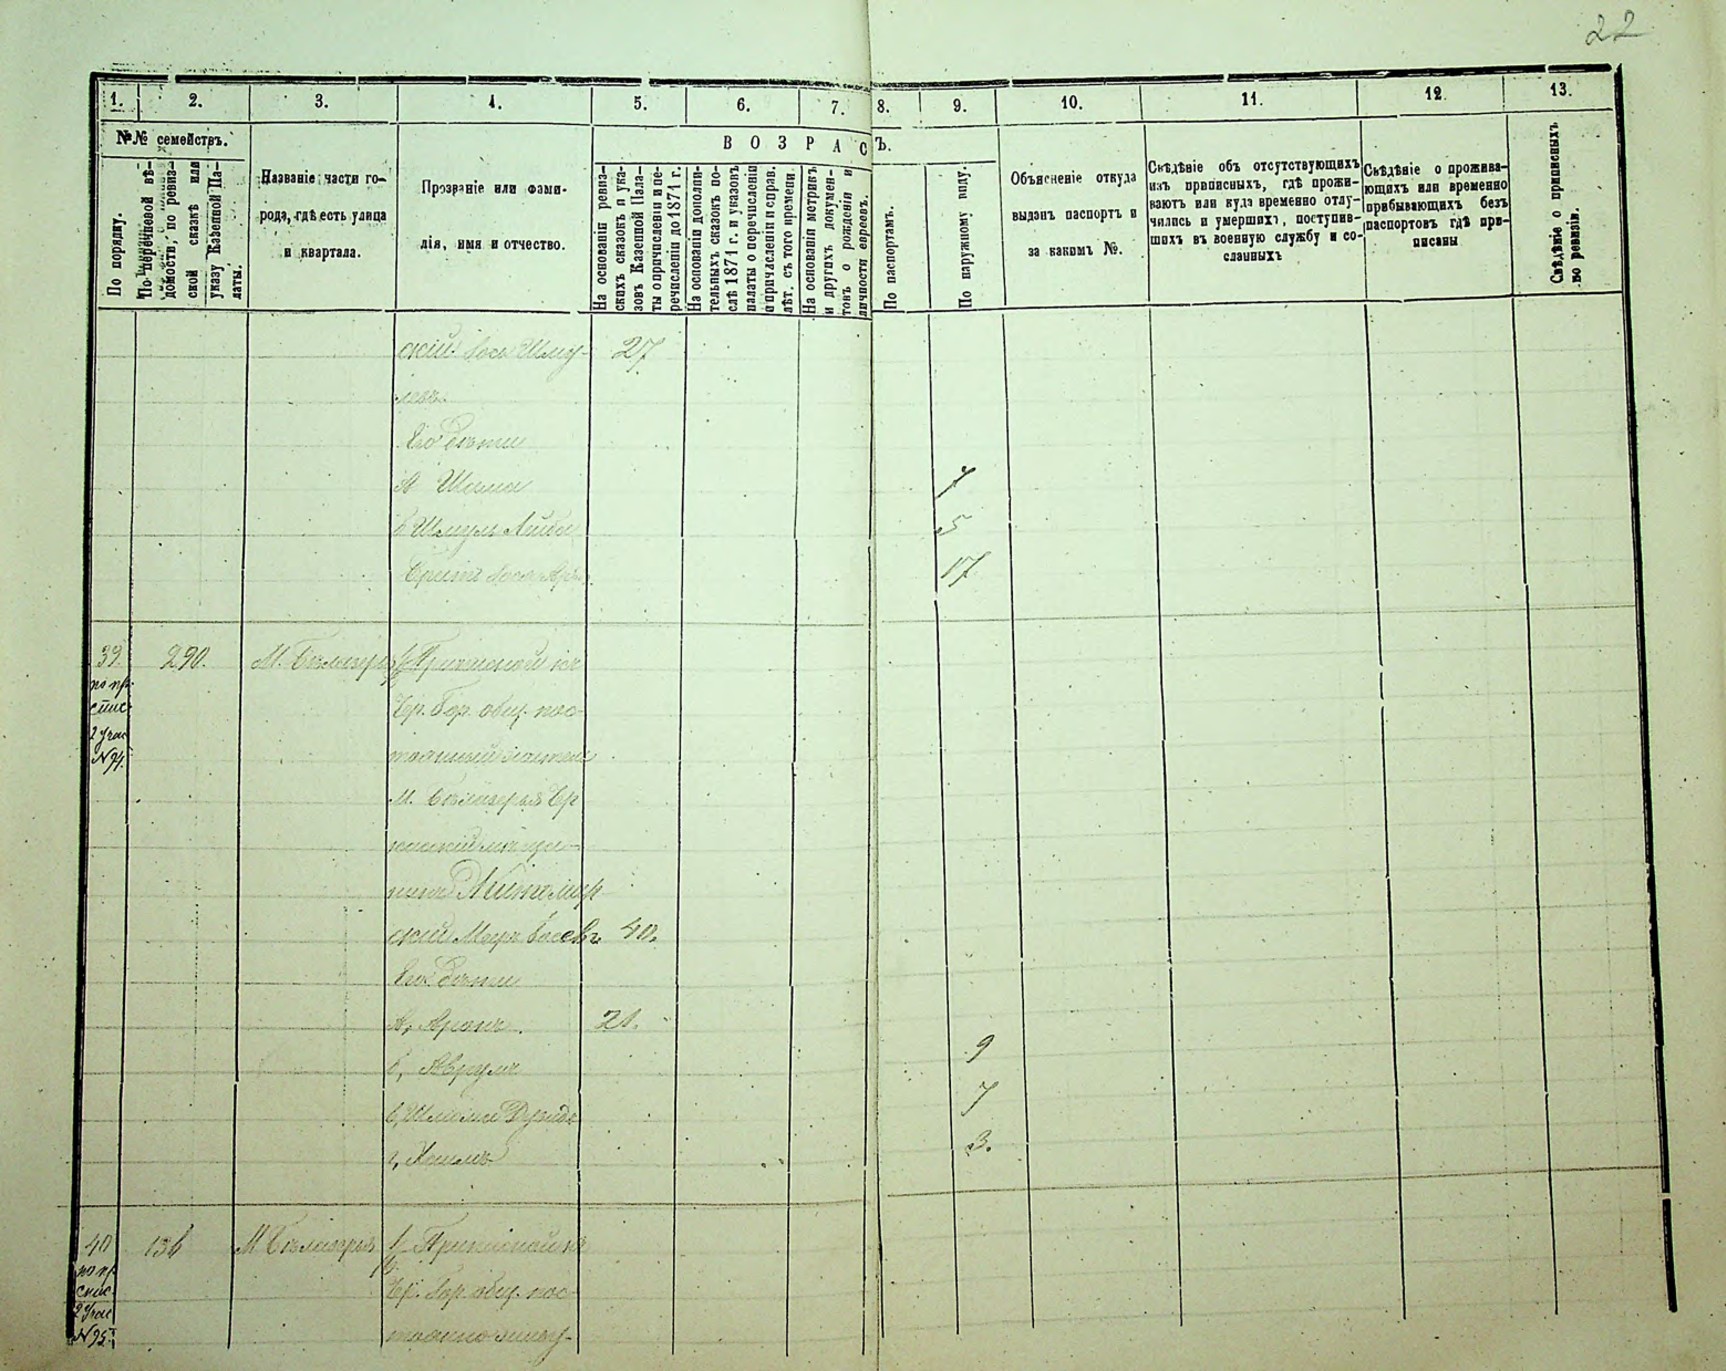 22
1. 2. 3. 4. 5. 6. 7. 8. 9. 10. 11. 12 13.
№№ семействъ.
По порядку.
По перечневой вѣ-
домости, по ревиз-
ской сказкѣ или
указу Казенной Па-
латы.
Названіе части го-
рода, гдѣ есть улица
и квартала.
Прозваніе или фами-
лія, имя и отчество.
ВОЗРАСЪ.
На основаніи ревиз-
скихъ сказокъ и ука-
зовъ Казенной Пала-
ты о причисленіи и пе-
речисленіи до 1871 г.
На основаніи дополни-
тельныхъ сказокъ по-
слѣ 1871 г. и указовъ
палаты о перечисленіи
и причисленіи и справ.
лѣт. съ того времени.
На основаніи метрикъ
и другихъ докумен-
товъ о рожденіи и
личности евреевъ.
По паспортамъ.
По наружному виду.
Объясненіе откуда
выданъ паспортъ и
за какомъ №.
Свѣдѣніе объ отсутствующихъ
изъ приписныхъ, гдѣ прожи-
ваютъ или куда временно отлу-
чились и умершихъ, поступив-
шихъ въ военную службу и со-
сланныхъ
Свѣдѣніе о прожива-
ющихъ или временно
прибывающихъ безъ
паспортовъ гдѣ при-
писаны
Свѣдѣніе о приписныхъ
по ревизіи.
скій Шму- 27
левъ
Его дѣти
а Шлема 7
б Шмуль Лейба 5
17
39. 290. М. Бѣлозерье Приписной къ
по пр.
Чр. Гор. общ. пос-
спис.
2 Учас
тоянный жител
№ 94.
М. Бѣлозерья Чр
Житомир
скій Меер 40.
Его дѣти
а, Аронъ. 21.
б, Аврумъ 9
в, Шлема 7
г, Хаимъ 3.
40 136 М Бѣлозерье Приписной къ
по пр
спис.
Чр. Гор. общ. пос-
2 Учас
№ 95.
тоянно живу-